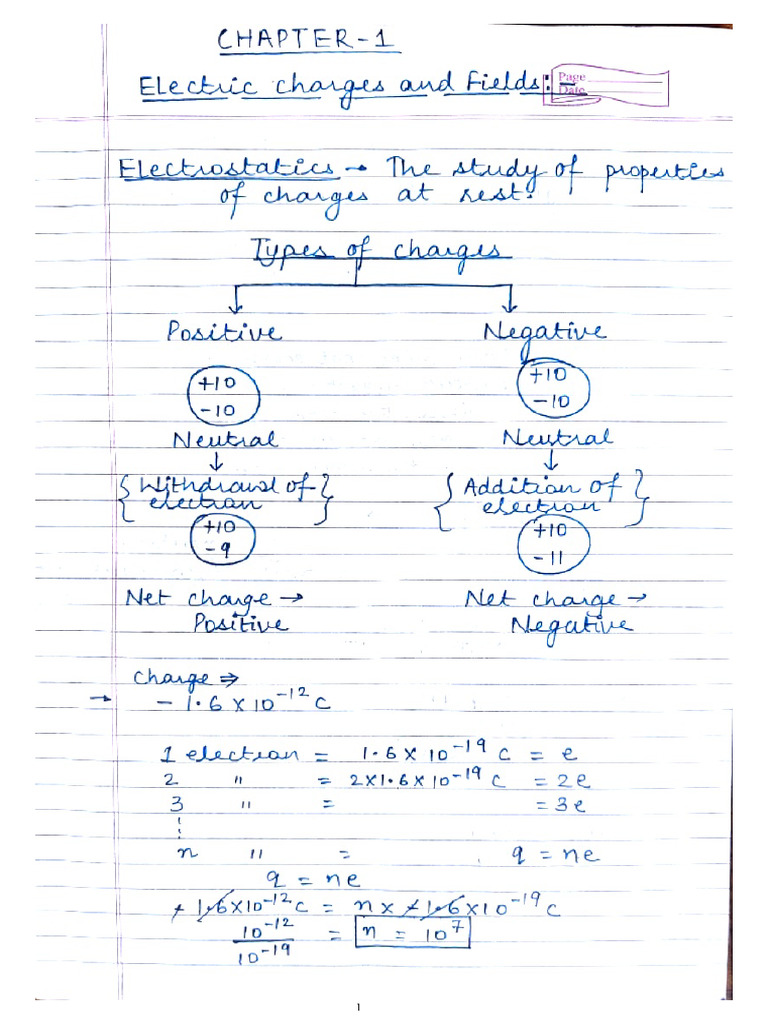 CHAPTER-1
Electric charges and Fields:-
Page
Date
Electrostatics → The study of properties
of charges at rest.
Types of charges
Positive Negative
+10 +10
-10 -10
Neutral Neutral
↓ ↓
{Withdrawal of electron} {Addition of electron}
+10 +10
-9 -11
Net charge → Net charge →
Positive Negative
Charge ⇒
→ - 1.6 × 10⁻¹² C
1 electron = 1.6 × 10⁻¹⁹ C = e
2 " = 2×1.6×10⁻¹⁹ C = 2e
3 " = = 3e
n " = q = ne
q = ne
-1.6×10⁻¹² C = n × -1.6×10⁻¹⁹ C
10⁻¹²/10⁻¹⁹ = n = 10⁷
1